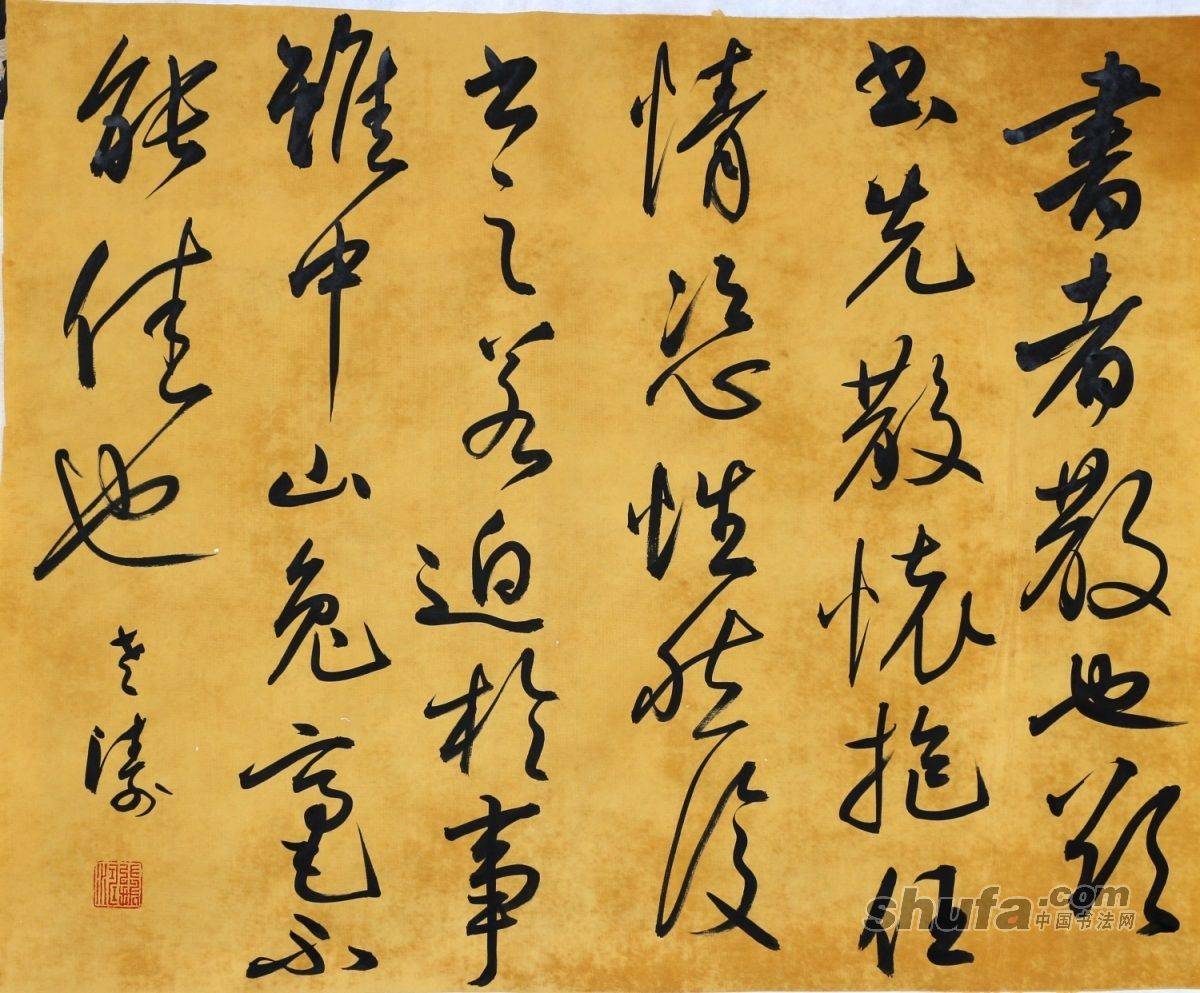 書者散也欲
書先散懷抱任
情恣性然後
書之若迫於事
雖中山兔毫不
能佳也
老濤
shufa.com
中国书法网